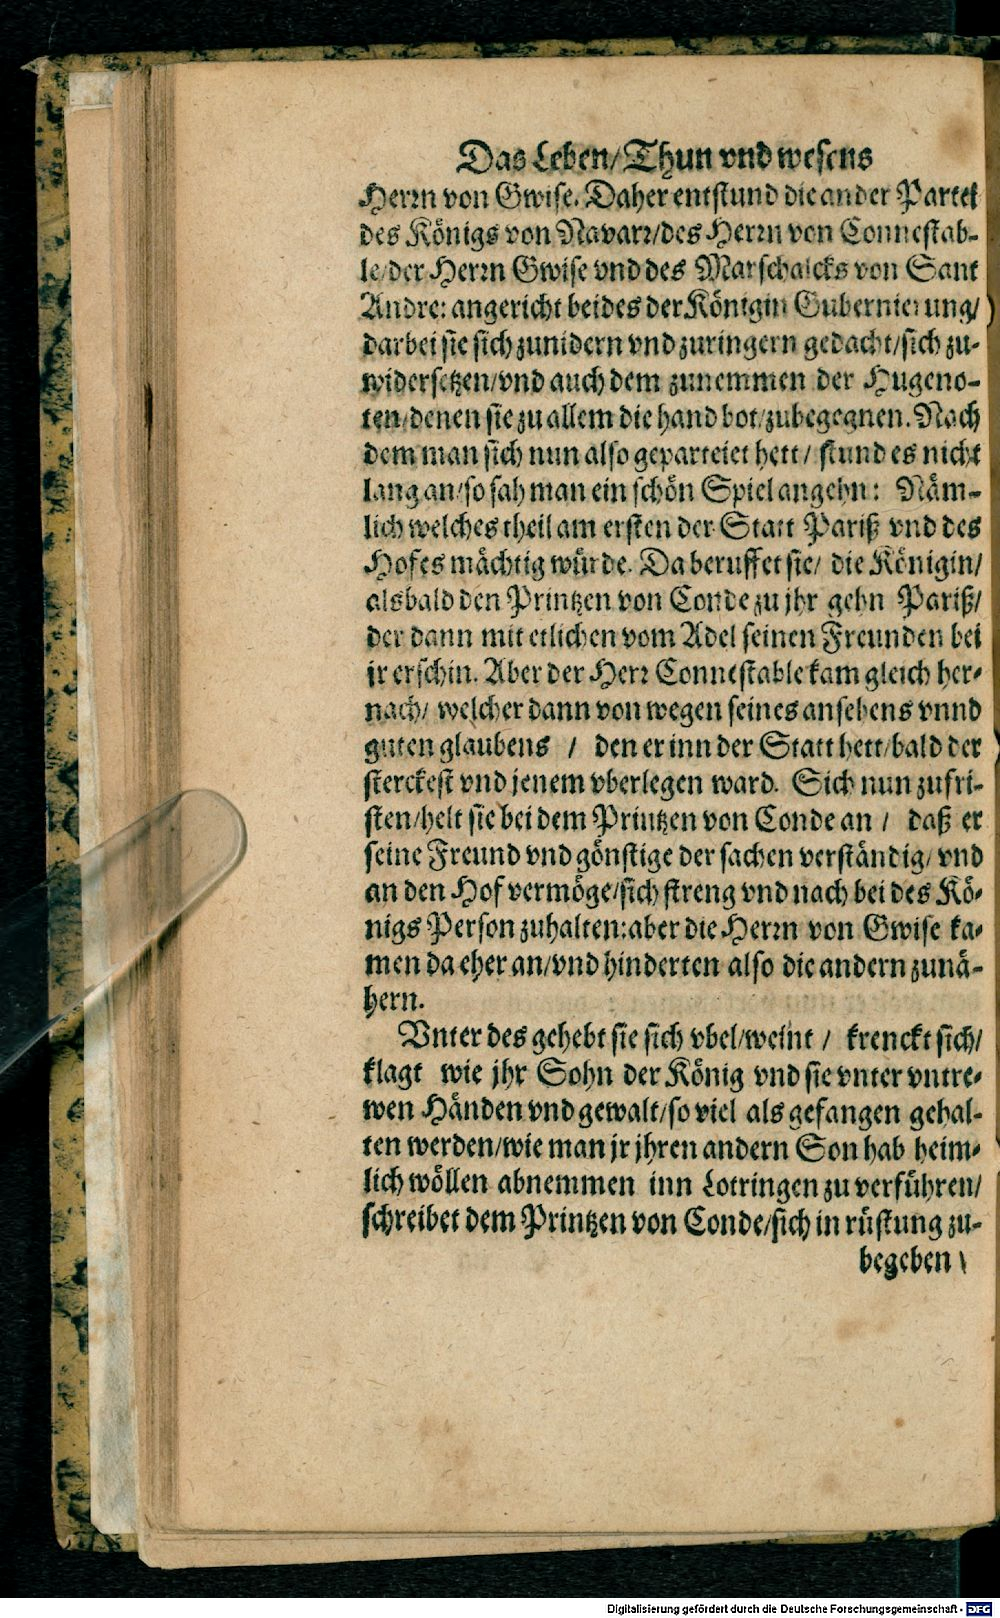 Das Leben/ Thun vnd wesens
Herrn von Gwise. Daher entstund die ander Partei
des Königs von Navarr/des Herrn von Connestab-
le/der Herrn Gwise vnd des Marschalcks von Sant
Andre: angericht beides der Königin Gubernierung/
darbei sie sich zunidern vnd zuringern gedacht/sich zu-
widersetzen/vnd auch dem zunemmen der Hugeno-
ten/denen sie zu allem die hand bot/zubegegnen. Nach
dem man sich nun also geparteiet hett/ stund es nicht
lang an/so sah man ein schön Spiel angehn: Näm-
lich welches theil am ersten der Statt Pariß vnd des
Hofes mächtig würde. Da beruffet sie/ die Königin/
alsbald den Printzen von Conde zu jhr gehn Pariß/
der dann mit etlichen vom Adel seinen Freunden bei
jr erschin. Aber der Herr Connestable kam gleich her-
nach/ welcher dann von wegen seines ansehens vnnd
guten glaubens / den er inn der Statt hett/bald der
sterckest vnd jenem vberlegen ward. Sich nun zufri-
sten/helt sie bei dem Printzen von Conde an / daß er
seine Freund vnd gönstige der sachen verständig/ vnd
an den Hof vermöge/sich streng vnd nach bei des Kö-
nigs Person zuhalten:aber die Herrn von Gwise ka-
men da eher an/vnd hinderten also die andern zunä-
hern.
Vnter des gehebt sie sich vbel/weint / krenckt sich/
klagt wie jhr Sohn der König vnd sie vnter vntre-
wen Händen vnd gewalt/so viel als gefangen gehal-
ten werden/wie man jr jhren andern Son hab heim-
lich wöllen abnemmen inn Lotringen zu verführen/
schreibet dem Printzen von Conde/sich in rüstung zu-
begeben
Digitalisierung gefördert durch die Deutsche Forschungsgemeinschaft - DFG